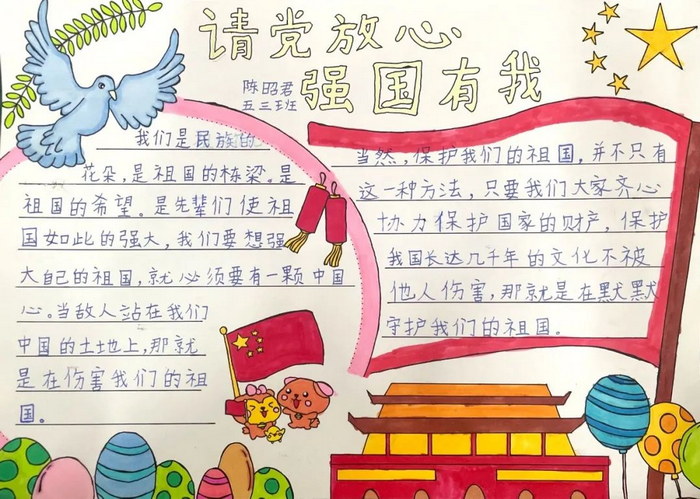 请党放心
强国有我
陈昭君
五三班
我们是民族的
花朵,是祖国的栋梁。是
祖国的希望。是先辈们使祖
国如此的强大,我们要想强
大自己的祖国,就必须要有一颗中国
心。当敌人站在我们
中国的土地上,那就
是在伤害我们的祖
国。
当然,保护我们的祖国,并不只有
这一种方法,只要我们大家齐心
协力保护国家的财产,保护
我国长达几千年的文化不被
他人伤害,那就是在默默
守护我们的祖国。